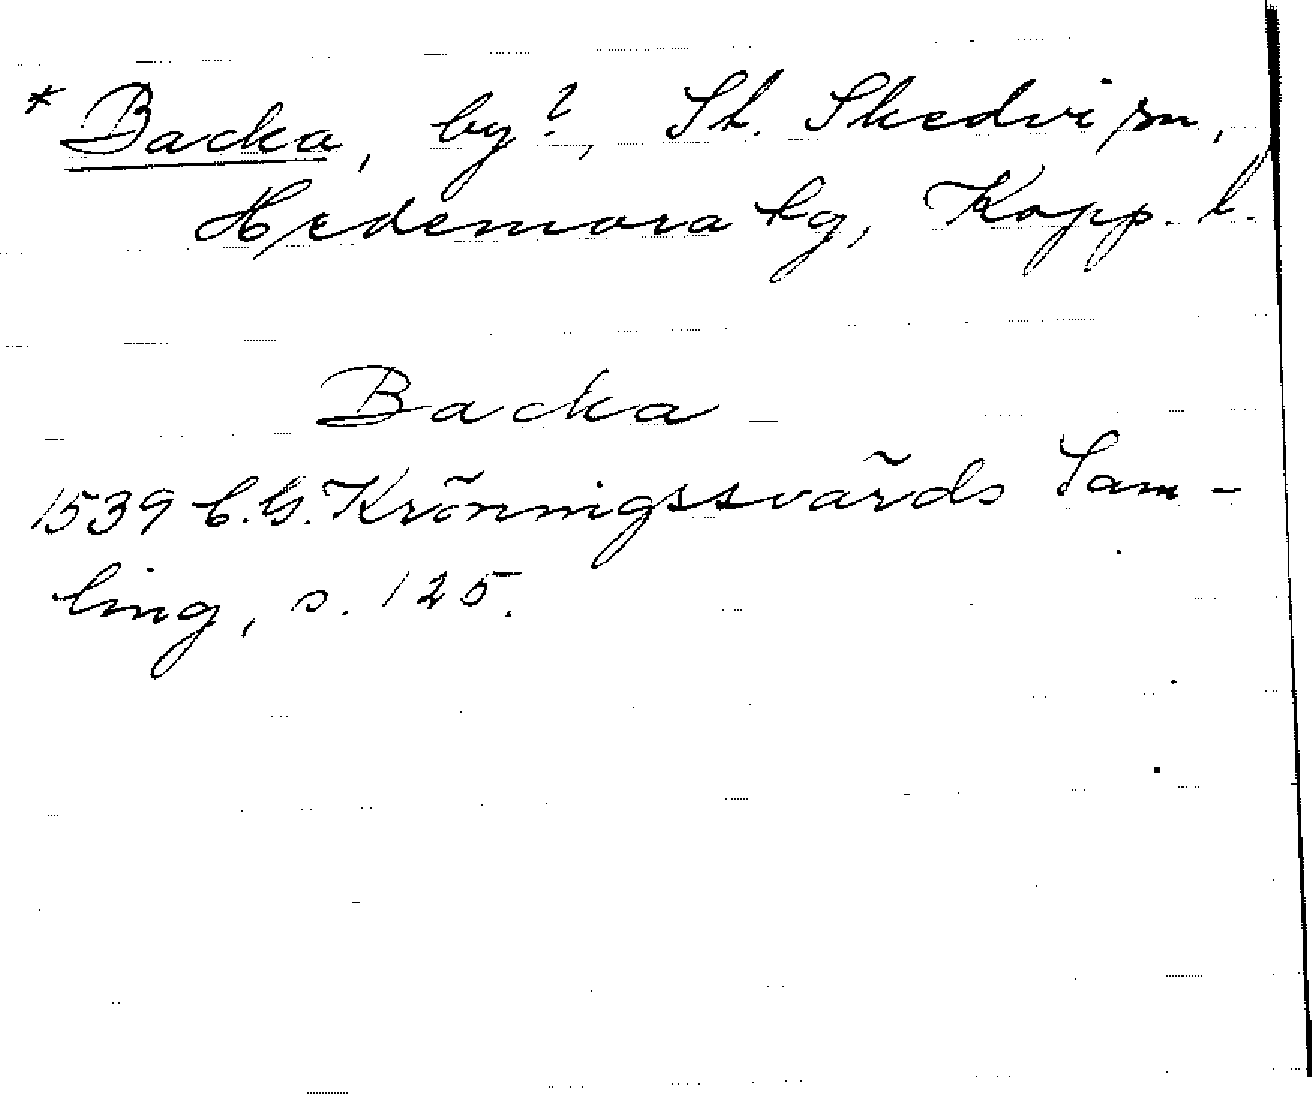 * Backa, by?, St. Skedvi sn,
Hedemora tg, Kopp. l.
Backa
1539 C.G. Kröningssvärds Sam-
ling, s. 125.